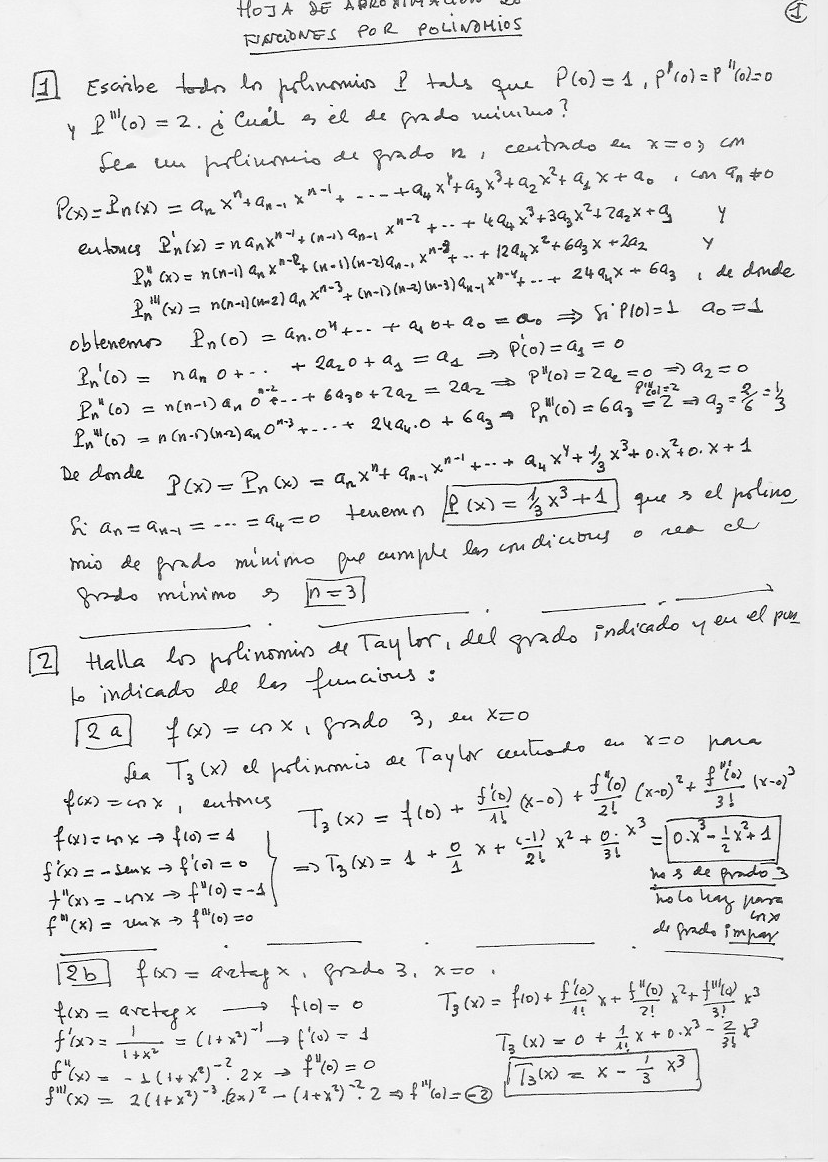 HOJA DE APROXIMACIÓN DE
FUNCIONES POR POLINOMIOS
1
1 Escribe todos los polinomios P tales que P(0) = 1, P'(0) = P''(0) = 0
y P'''(0) = 2. ¿Cuál es el de grado mínimo?
Sea un polinomio de grado n, centrado en x = 0, con
P(x) = Pn(x) = an x^n + an-1 x^n-1 + ---- + a4 x^4 + a3 x^3 + a2 x^2 + a1 x + a0, con an ≠ 0
entonces P'n(x) = n an x^n-1 + (n-1) an-1 x^n-2 + ... + 4a4 x^3 + 3a3 x^2 + 2a2 x + a1 y
P''n(x) = n(n-1) an x^n-2 + (n-1)(n-2) an-1 x^n-3 + ... + 12a4 x^2 + 6a3 x + 2a2 y
P'''n(x) = n(n-1)(n-2) an x^n-3 + (n-1)(n-2)(n-3) an-1 x^n-4 + ... + 24a4 x + 6a3, de donde
obtenemos Pn(0) = an.0^n + ... + a1 0 + a0 = a0 ⇒ Si P(0) = 1 a0 = 1
Pn'(0) = n an 0 + ... + 2a2 0 + a1 = a1 ⇒ P'(0) = a1 = 0
Pn''(0) = n(n-1) an 0^n-2 + ... + 6a3 0 + 2a2 = 2a2 ⇒ P''(0) = 2a2 = 0 ⇒ a2 = 0
P'''(0)=2
Pn'''(0) = n(n-1)(n-2) an 0^n-3 + ... + 24a4.0 + 6a3 ⇒ Pn'''(0) = 6a3 = 2 ⇒ a3 = 2/6 = 1/3
De donde P(x) = Pn(x) = an x^n + an-1 x^n-1 + ... + a4 x^4 + 1/3 x^3 + 0.x^2 + 0.x + 1
Si an = an-1 = --- = a4 = 0 tenemos P(x) = 1/3 x^3 + 1 que es el polino
mio de grado mínimo que cumple las condiciones o sea el
grado mínimo es n = 3
2 Halla los polinomios de Taylor, del grado indicado y en el pun
to indicado de las funciones:
2a f(x) = cos x, grado 3, en x=0
Sea T3(x) el polinomio de Taylor centrado en x=0 para
f(x) = cos x, entonces
T3(x) = f(0) + f'(0)/1! (x-0) + f''(0)/2! (x-0)^2 + f'''(0)/3! (x-0)^3
f(x) = cos x → f(0) = 1
f'(x) = -sen x → f'(0) = 0
f''(x) = -cos x → f''(0) = -1
f'''(x) = sen x → f'''(0) = 0
⇒ T3(x) = 1 + 0/1 x + (-1)/2! x^2 + 0/3! x^3 = 0.x^3 - 1/2 x^2 + 1
no es de grado 3
no lo hay para
cos x
de grado impar
2b f(x) = arctag x, grado 3, x=0.
f(x) = arctag x → f(0) = 0
f'(x) = 1/(1+x^2) = (1+x^2)^-1 → f'(0) = 1
f''(x) = -1(1+x^2)^-2 . 2x → f''(0) = 0
f'''(x) = 2(1+x^2)^-3 .(2x)^2 - (1+x^2)^-2 . 2 ⇒ f'''(0) = -2
T3(x) = f(0) + f'(0)/1! x + f''(0)/2! x^2 + f'''(0)/3! x^3
T3(x) = 0 + 1/1! x + 0.x^3 - 2/3! x^3
T3(x) = x - 1/3 x^3